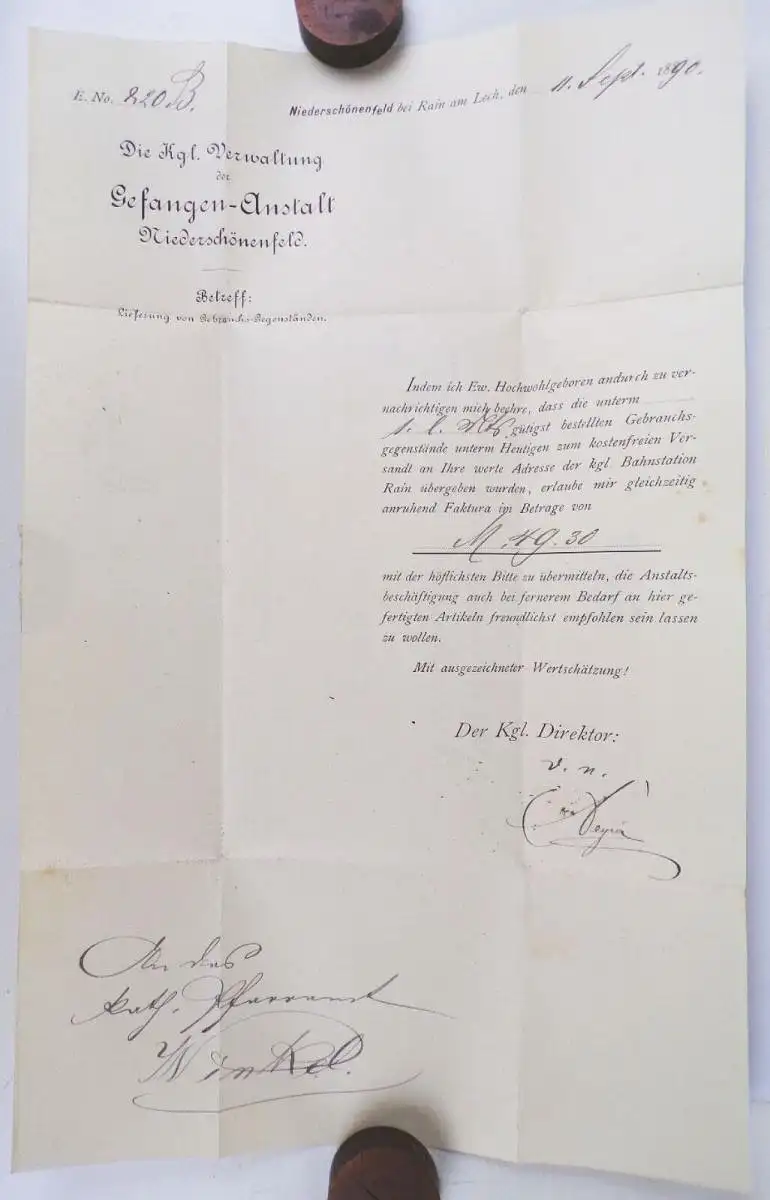 E. No. 220 B.
Niederschönenfeld bei Rain am Lech, den 11. Sept. 1890.
Die Kgl. Verwaltung
der
Gefangen-Anstalt
Niederschönenfeld.
Betreff:
Lieferung von Gebrauchs-Gegenständen.
Indem ich Ew. Hochwohlgeboren andurch zu ver-
nachrichtigen mich beehre, dass die unterm
1. l. Mts. gütigst bestellten Gebrauchs-
gegenstände unterm Heutigen zum kostenfreien Ver-
sandt an Ihre werte Adresse der kgl. Bahnstation
Rain übergeben wurden, erlaube mir gleichzeitig
anruhend Faktura im Betrage von
M. 49.30
mit der höflichsten Bitte zu übermitteln, die Anstalts-
beschäftigung auch bei fernerem Bedarf an hier ge-
fertigten Artikeln freundlichst empfohlen sein lassen
zu wollen.
Mit ausgezeichneter Wertschätzung!
Der Kgl. Direktor:
v. n.
An das
kath. Pfarramt
Winkel.